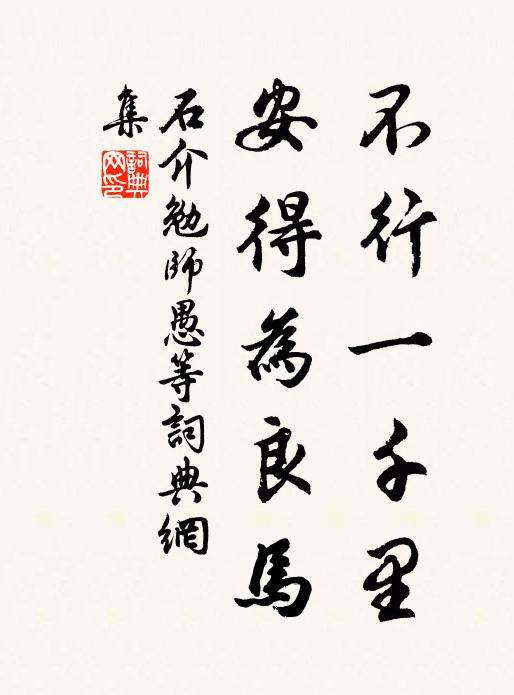 不行一千里
安得為良馬
石介勉師愚等詞典網
集
詞典
网印